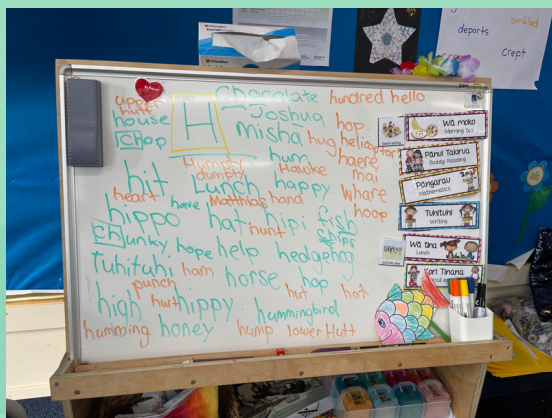 ambled
departs
crept
Chocolate hundred hello
upper
hutt
house
H
Joshua
hop
chop
misha
hug helicopter
hum
haere
mai
Humpty
dumpty
Hawke
hit
Lunch
happy
whare
heart
have
Matthias
hand
hoop
hippo
hat
hunt
hipi
fish
chips
chunky
hope
help
hedgehog
Tuhituhi
ham
horse
hop
punch
hut
hot
high
hurt
hippy
hummingbird
humming
honey
hump
lower Hutt
Wā moko
Morning tea
Pānui Takirua
Buddy Reading
Pāngarau
Mathematics
Tuhituhi
Writing
Wā tina
Lunch
Kori Tinana